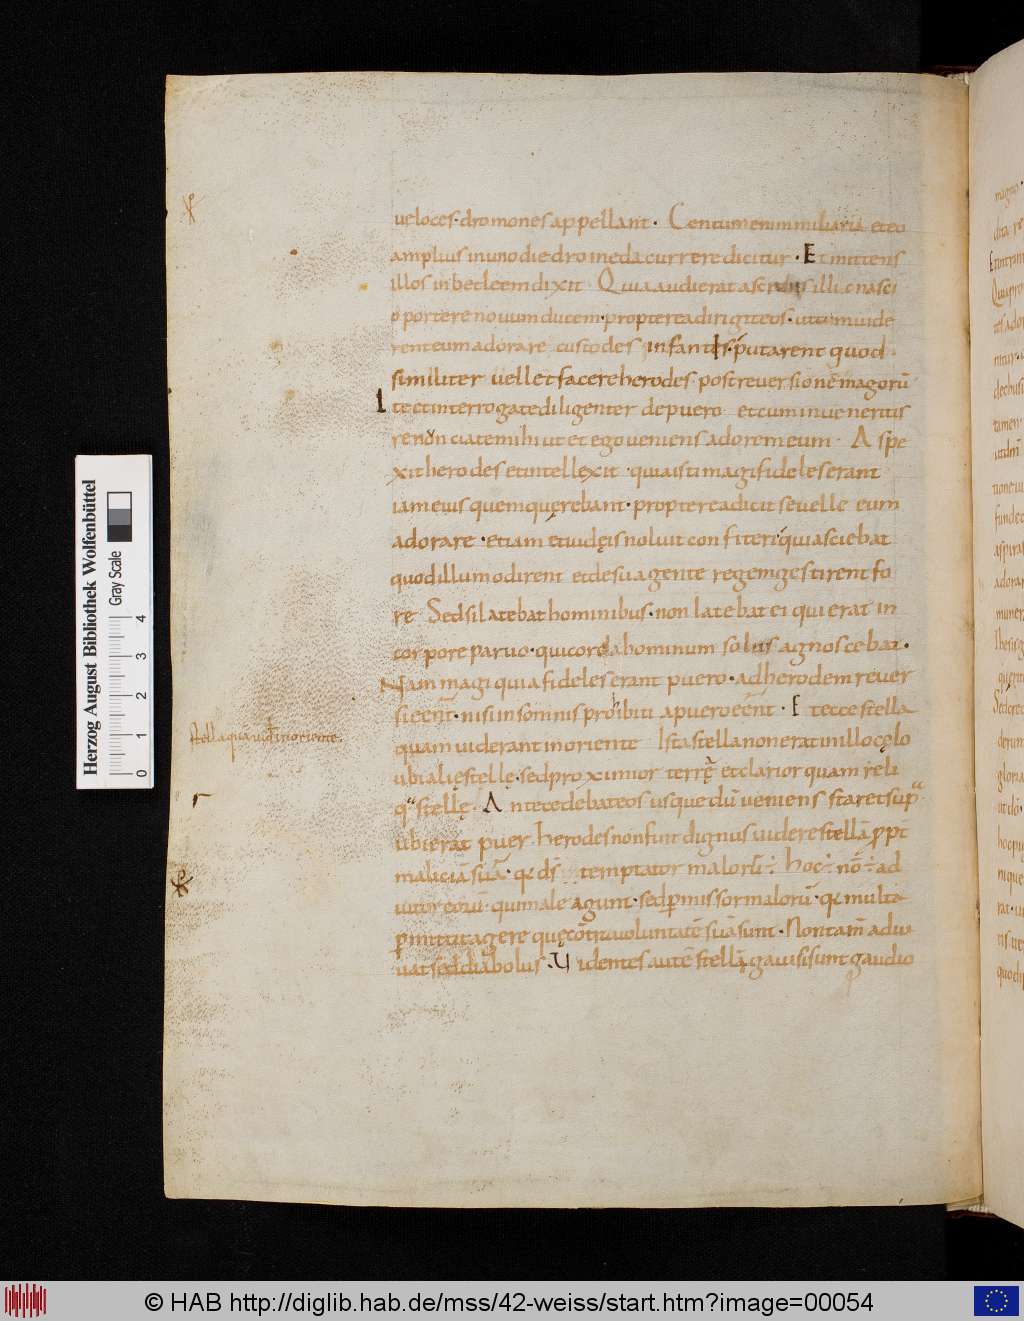 veloces· dromones appellant· Centum enim miliaria et eo
amplius in uno die dromeda currere dicitur· Et mittens
illos in betleem dixit· Quia audierat a scribis illic nasci
oportere novum ducem· propterea dirigit eos· ut cum vide
rent eum adorare custodes infantis· putarent quod
similiter vellet facere herodes· post reversionē magorū
Ite et interrogate diligenter de puero et cum inveneritis
renunciate mihi ut et ego veniens adorem eum· Aspe
xit herodes et intellexit· quia isti magi fideles erant
iam eius quem querebant· propterea dicit se velle eum
adorare· etiam et iudęis noluit confiteri quia sciebat
quod illum odirent et de sua gente regem gestirent fo
re Sed si latebat hominibus· non latebat ei qui erat in
corpore parvo· qui corda hominum solus agnoscebat·
Nam magi quia fideles erant puero· ad herodem rever
si eēnt· nisi in somnis prohibiti a puero eēnt· Et ecce stella
quam viderant in oriente Ista stella non erat in illo cęlo
ubi alię stellę· sed proximior terrę et clarior quam reli
q stellę· Antecedebat eos usque dū veniens staret sup
ubi erat puer· herodes non fuit dignus videre stellā ppt
maliciā suā· qa ds temptator malorū· hoc· nō· ad
iutor eorū· qui male agunt· sed pmissor malorū· qa multa
pmittit agere quę cōtra voluntatē suā sunt· Non tam̄ adiu
vat sed diabolus· Videntes autē stellā gavisi sunt gaudio
stella quā vid in oriente·
Herzog August Bibliothek Wolfenbüttel
Gray Scale
0 1 2 3 4
© HAB http://diglib.hab.de/mss/42-weiss/start.htm?image=00054